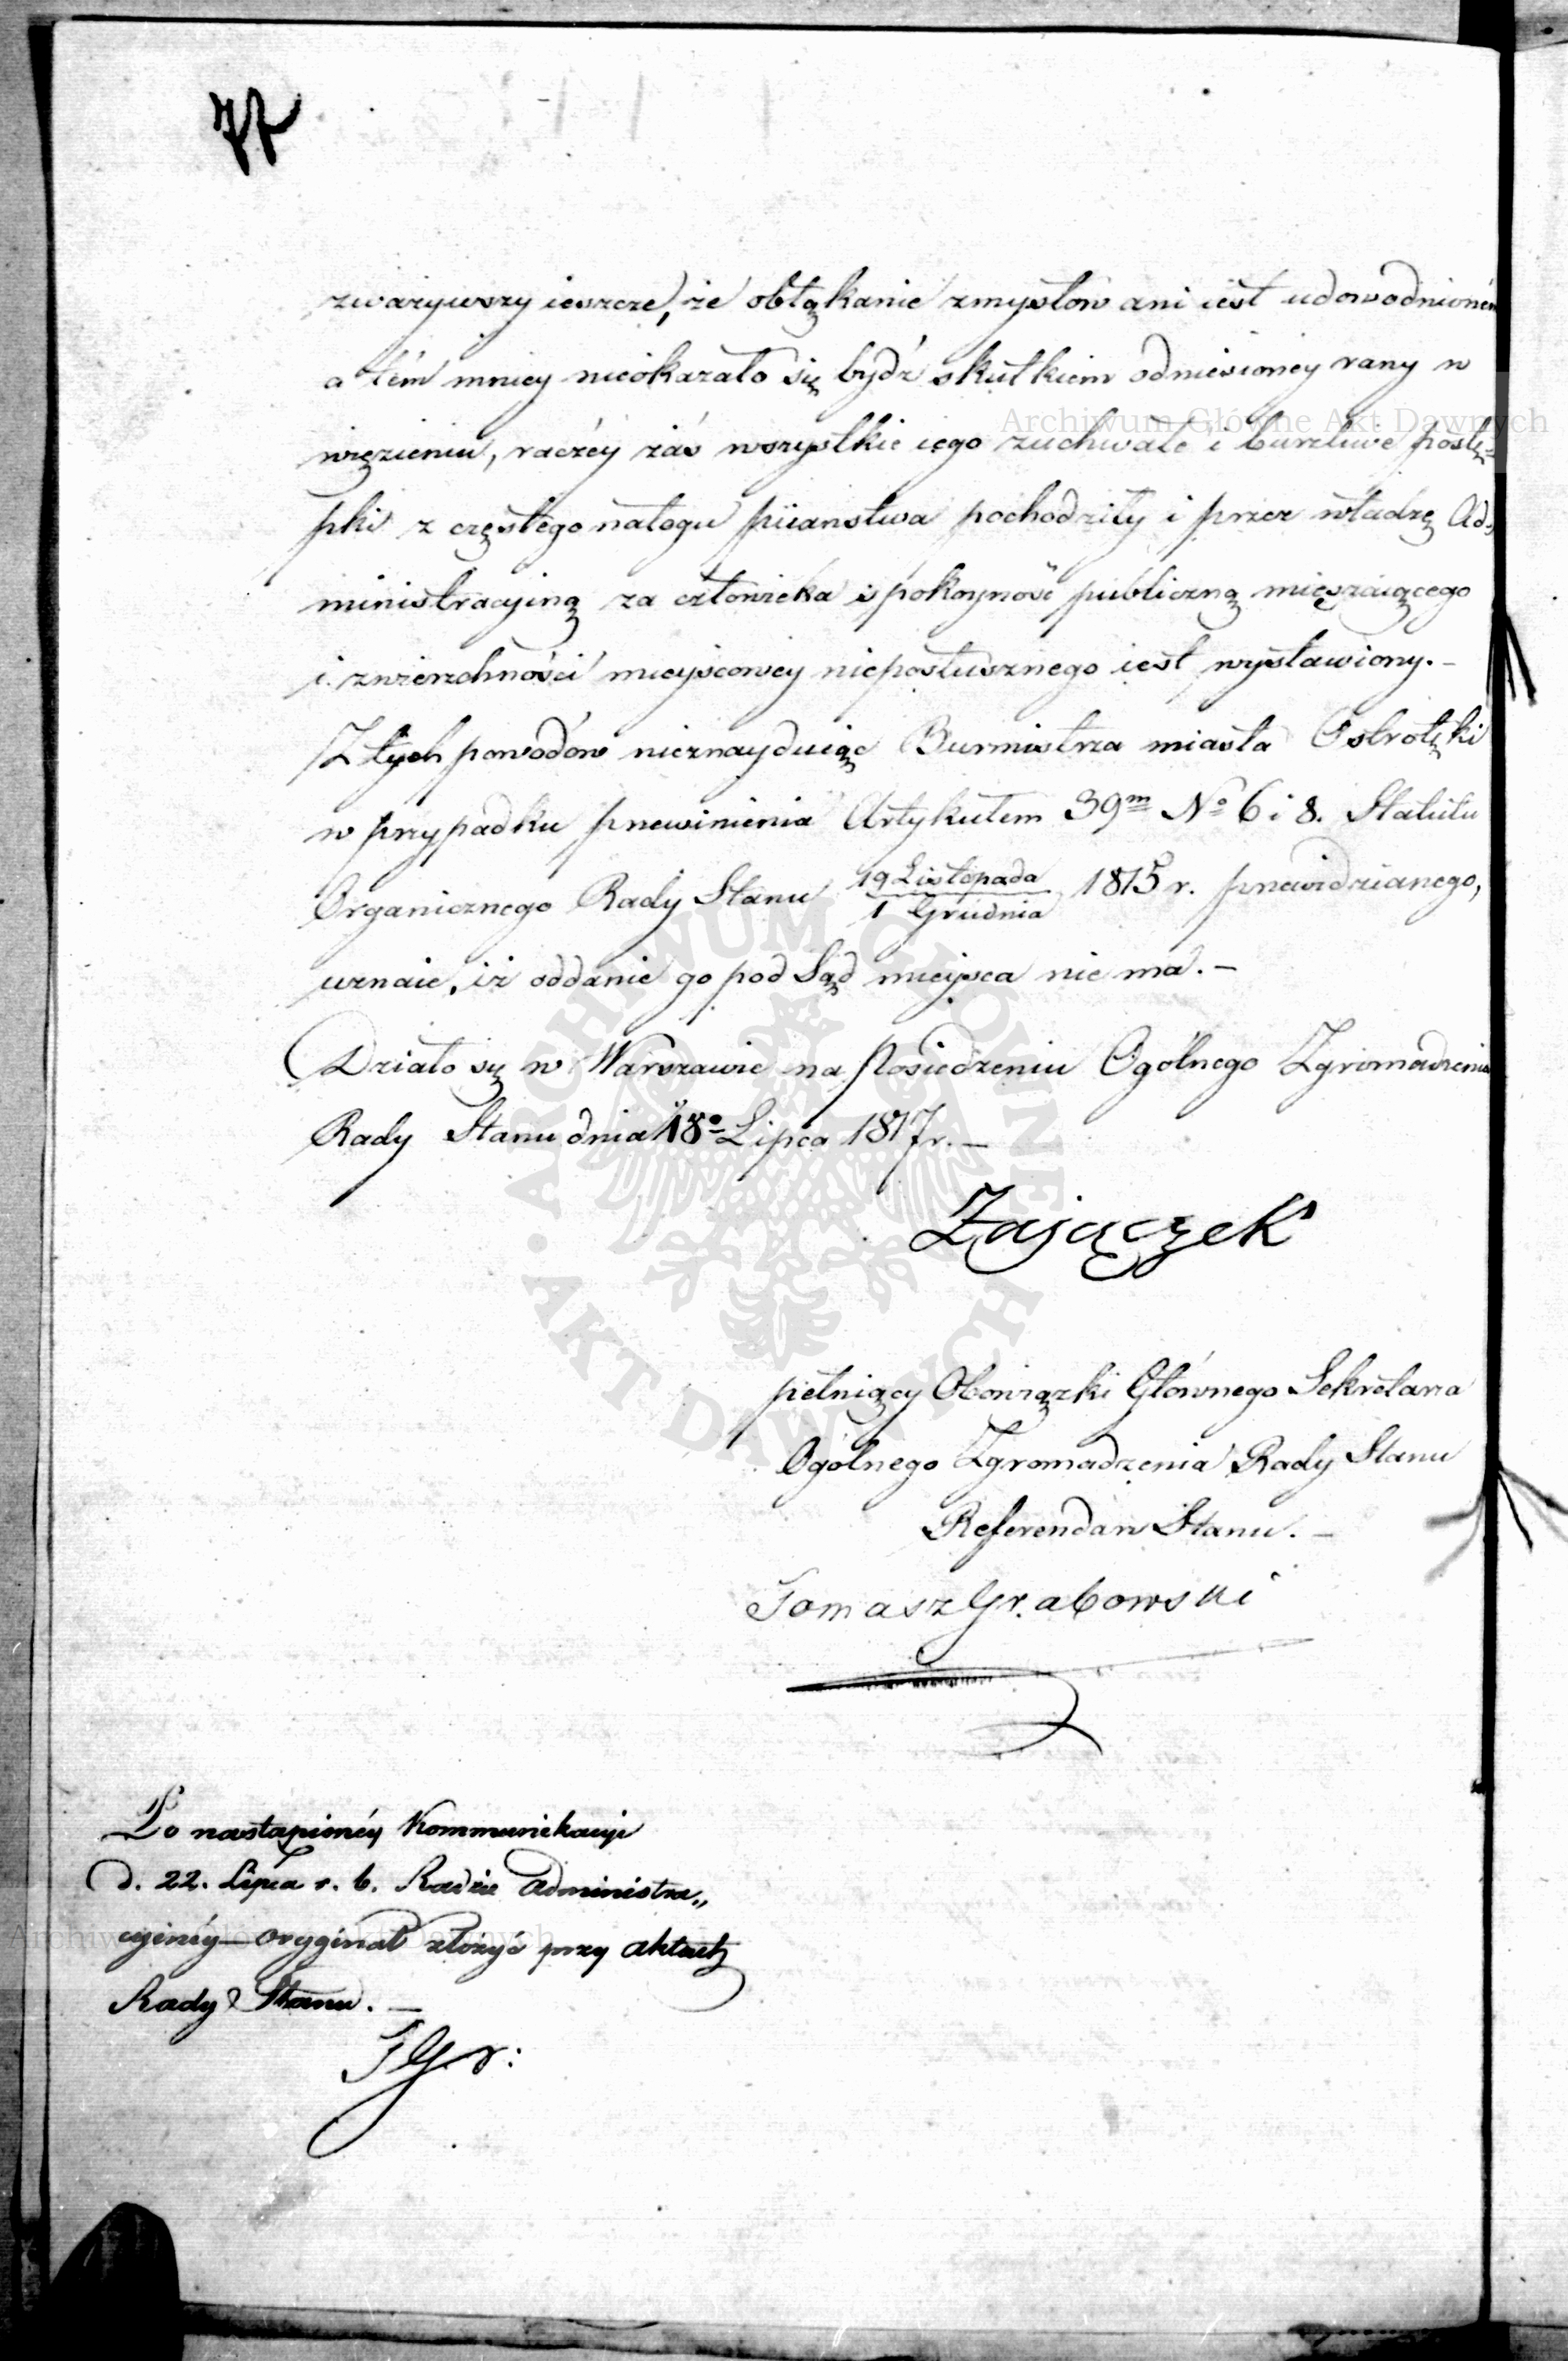 zwarzywszy ieszcze, że obłąkanie zmysłów ani iest udowodnioném
a tém mniey nieokazało się bydź skutkiem odniesioney rany w
więzieniu, raczéy zaś wszystkie iego zuchwałe i burzliwe postę-
pki z częstego nałogu piiaństwa pochodziły i przez władzę Ad-
ministracyiną za człowieka spokoyność publiczną mięszaiącego
i zwierzchności mieyscowey nieposłusznego iest wystawiony. -
Z tych powodów nieznayduiąc Burmistrza miasta Ostrołęki
w przypadku przewinienia Artykułem 39m No 6 i 8. Statutu
Organicznego Rady Stanu 19 Listopada / 1 Grudnia 1815 r. przewidzianego,
uznaie, iż oddanie go pod Sąd mieysca nie ma. -
Działo się w Warszawie na Posiedzeniu Ogólnego Zgromadzenia
Rady Stanu dnia 18o Lipca 1817 r. -
Zajączek
pełniący Obowiązki Głównego Sekretarza
Ogólnego Zgromadzenia Rady Stanu
Referendarz Stanu. -
Tomasz Grabowski
Po nastąpionéy Kommunikacyi
d. 22. Lipca r. b. Radzie Administra„
cyinéy - oryginał złożyć przy aktach
Rady Stanu. -
TGr:
Archiwum Główne Akt Dawnych
Archiwum Główne Akt Dawnych
ARCHIWUM GŁÓWNE
• AKT DAWNYCH •